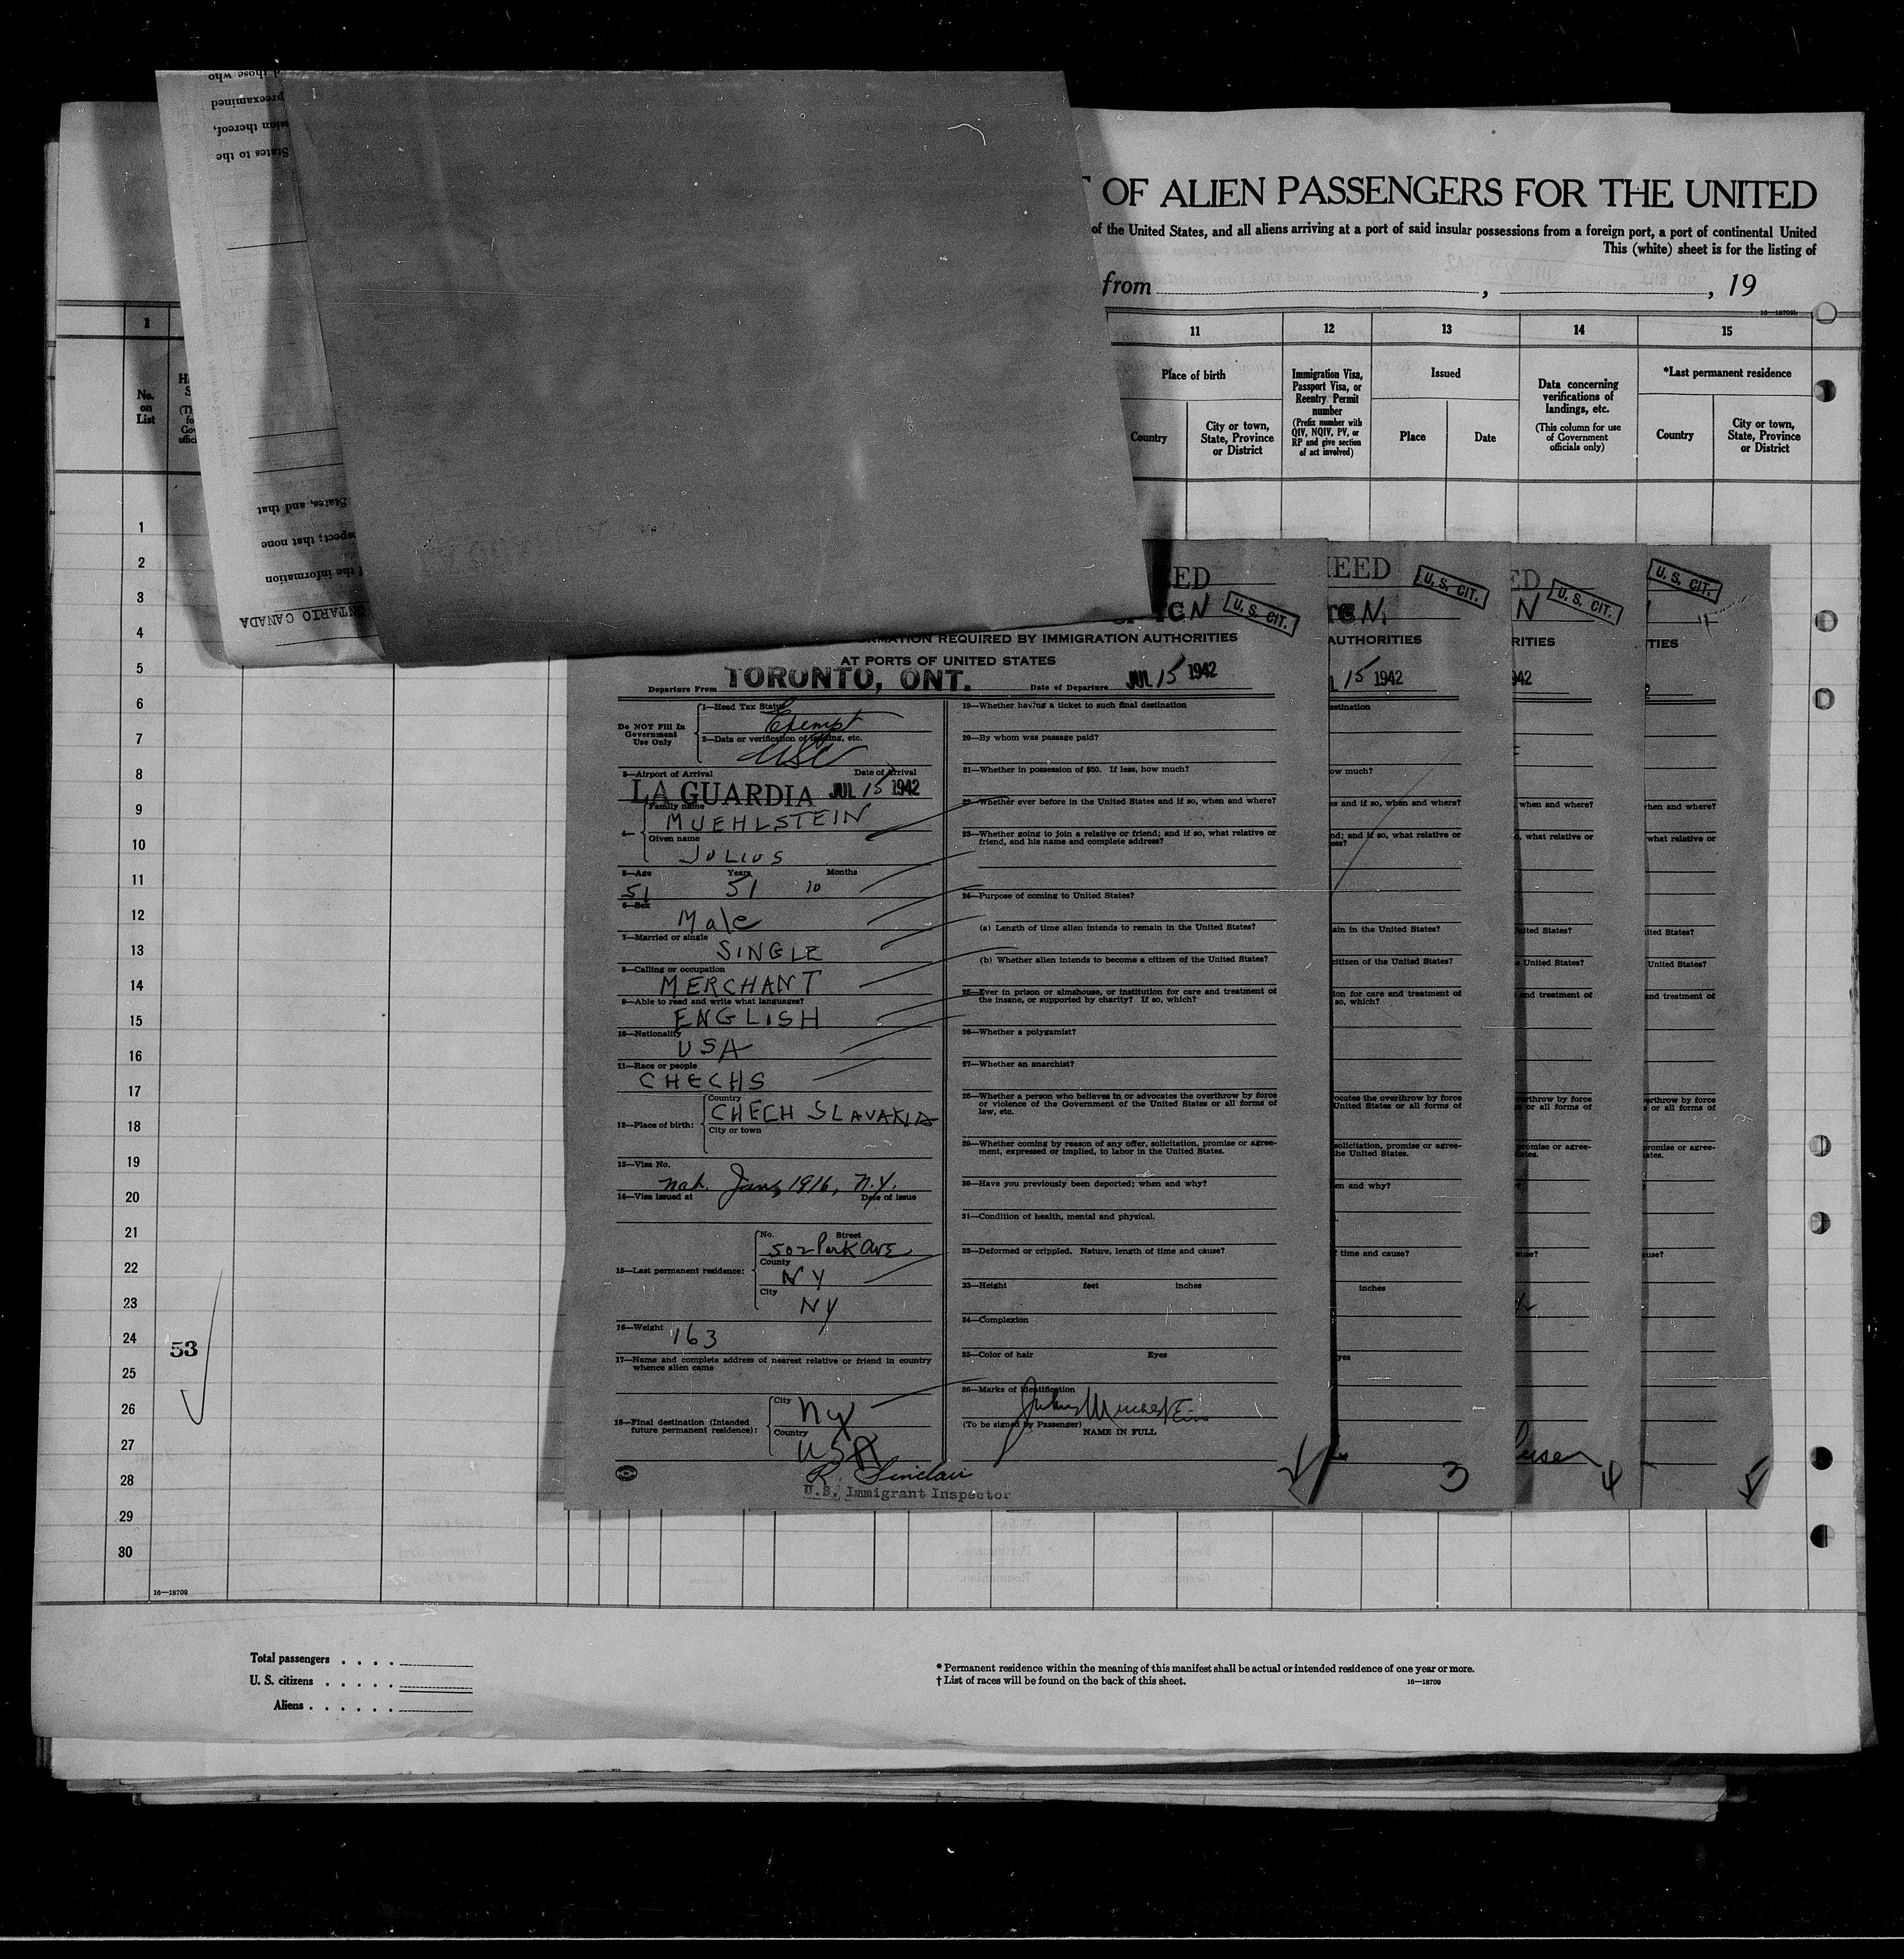 OF ALIEN PASSENGERS FOR THE UNITED
of the United States, and all aliens arriving at a port of said insular possessions from a foreign port, a port of continental United
This (white) sheet is for the listing of
from , , 19
16—18709b
d those who
preexamined
sion thereof,
States to the
States, and that
spect; that none
f the information
ONTARIO CANADA
1
No.
on
List
11
Place of birth
Country
City or town,
State, Province
or District
12
Immigration Visa,
Passport Visa, or
Reentry Permit
number
(Prefix number with
QIV, NQIV, PV, or
RP and give section
of act involved)
13
Issued
Place
Date
14
Data concerning
verifications of
landings, etc.
(This column for use
of Government
officials only)
15
*Last permanent residence
Country
City or town,
State, Province
or District
1
2
3
4
5
6
7
8
9
10
11
12
13
14
15
16
17
18
19
20
21
22
23
24
25
26
27
28
29
30
53
16—18709
U. S. CIT.
ORMATION REQUIRED BY IMMIGRATION AUTHORITIES
AT PORTS OF UNITED STATES
Departure From TORONTO, ONT. Date of Departure JUL 15 1942
Do NOT Fill In
Government
Use Only
1—Head Tax Status
Exempt
2—Data or verification of landing, etc.
USC
3—Airport of Arrival Date of Arrival
LA GUARDIA JUL 15 1942
4—
Family name
MUEHLSTEIN
Given name
JULIUS
5—Age Years Months
51 51 10
6—Sex
Male
7—Married or single
SINGLE
8—Calling or occupation
MERCHANT
9—Able to read and write what languages?
ENGLISH
10—Nationality
USA
11—Race or people
CHECHS
12—Place of birth:
Country
CHECH SLAVAKIA
City or town
13—Visa No.
nat. Jan, 1916, N.Y.
14—Visa issued at Date of issue
15—Last permanent residence:
No. Street
502 Park Ave
County
NY
City
NY
16—Weight 163
17—Name and complete address of nearest relative or friend in country
whence alien came
18—Final destination (Intended
future permanent residence):
City
NY
Country
USA
R. Sinclair
U.S. Immigrant Inspector
19—Whether having a ticket to such final destination
20—By whom was passage paid?
21—Whether in possession of $50. If less, how much?
22—Whether ever before in the United States and if so, when and where?
23—Whether going to join a relative or friend; and if so, what relative or
friend, and his name and complete address?
24—Purpose of coming to United States?
(a) Length of time alien intends to remain in the United States?
(b) Whether alien intends to become a citizen of the United States?
25—Ever in prison or almshouse, or institution for care and treatment of
the insane, or supported by charity? If so, which?
26—Whether a polygamist?
27—Whether an anarchist?
28—Whether a person who believes in or advocates the overthrow by force
or violence of the Government of the United States or all forms of
law, etc.
29—Whether coming by reason of any offer, solicitation, promise or agree-
ment, expressed or implied, to labor in the United States.
30—Have you previously been deported; when and why?
31—Condition of health, mental and physical.
32—Deformed or crippled. Nature, length of time and cause?
33—Height feet inches
34—Complexion
35—Color of hair Eyes
36—Marks of identification
Julius Muehlstein
(To be signed by Passenger)
NAME IN FULL
U. S. CIT.
AUTHORITIES
15 1942
3
U. S. CIT.
RITIES
4
U. S. CIT.
TIES
Total passengers . . . .
U. S. citizens . . . . .
Aliens . . . . . .
* Permanent residence within the meaning of this manifest shall be actual or intended residence of one year or more.
† List of races will be found on the back of this sheet.
16—18709